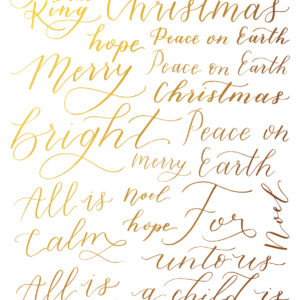 King
Christmas
hope
Peace on Earth
Merry
Peace on Earth
Christmas
bright
Peace on
Earth
merry
All is
Calm
Noel
hope
For
unto us
a child is
Noel
All is